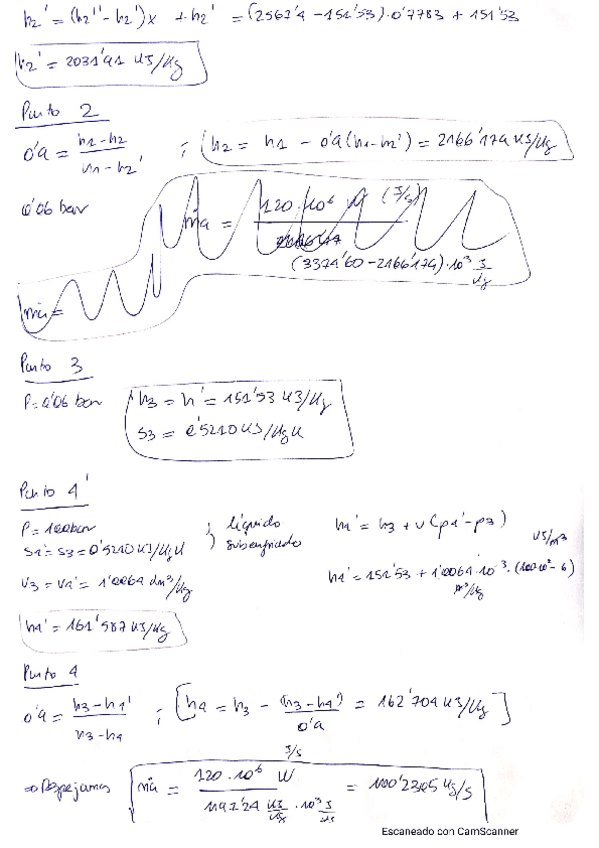 h₂' = (h₂'' - h₂')x + h₂' = (2567'4 - 151'53)·0'7783 + 151'53
h₂' = 2031'91 kJ/kg
Punto 2
0'9 = (h1 - h2)/(h1 - h2') ; h₂ = h1 - 0'9(h1 - h2') = 2166'174 kJ/kg
0'06 bar
ṁa = 120·10⁶ W (J/s) / (3374'60 - 2166'174)·10³ J/kg
ṁa =
Punto 3
P = 0'06 bar
h₃ = h' = 151'53 kJ/kg
s₃ = 0'5210 kJ/kgK
Punto 4'
P = 100bar
S4' = S3 = 0'5210 kJ/kgK
; líquido subenfriado
V3 = V4' = 1'0064 dm³/kg
h4' = h3 + v(p4' - p3)
kJ/m³
h4' = 151'53 + 1'0064·10⁻³·(100·10² - 6)
m³/kg
h4' = 161'587 kJ/kg
Punto 4
0'9 = (h3 - h4')/(h3 - h4) ; h4 = h3 - (h3 - h4')/0'9 = 162'704 kJ/kg
J/s
⇒ Despejamos ṁa = 120·10⁶ W / 1197'24 kJ/kg · 10³ J/kJ = 100'2305 kg/s
Escaneado con CamScanner